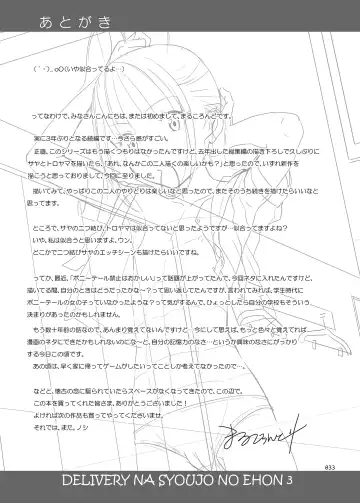 あとがき
(´･･)_oO(いや似合ってるよ…)
ってなわけで、みなさんこんにちは、または初めまして、まるころんどです。
実に3年ぶりとなる続編です…今さら感がすごい。
正直、このシリーズはもう描くつもりはなかったんですけど、去年出した総集編の描き下ろしで久しぶりに
サヤとトロヤマを描いたら、「あれ、なんかこの二人描くの楽しいかも?」と思ったので、いずれ新作を
描こうと思っておりまして、今回に至りました。
描いてみて、やっぱりこの二人のやりとりは楽しいなと思ったので、またそのうち続きを描けたらいいなと
思ってます。
ところで、サヤの二つ結び、トロヤマは似合ってないと思ったようですが…似合ってますよね?
いや、私は似合うと思いますよ、ウン。
どこかで二つ結びのサヤのエッチシーンも描けたらいいですね。
ってか、最近、「ポニーテール禁止はおかしい」って話題が上がってたんで、今回ネタに入れたんですけど、
描いてる間、自分のときはどうだったかな～って思い返してたんですが、言われてみれば、学生時代に
ポニーテールの女の子っていなかったような?って気がするんで、ひょっとしたら自分の学校もそういう
決まりがあったのかもしれません。
もう数十年前の話なので、あんまり覚えてないんですけど…今にして思えば、もっと色々と覚えてれば
漫画のネタにできたかもしれないのにな～と、自分の記憶力のなさ…というか興味の無さにがっかり
する今日この頃です。
あの頃は、早く家に帰ってゲームしたいってことしか考えてなかったので…。
などと、懐古の念に駆られていたらスペースがなくなってきたので、この辺で。
この本を買ってくれた皆さま、ありがとうございました!
よければ次の作品も買ってやってくださいませ。
それでは、また。ノシ
033
DELIVERY NA SYOUJO NO EHON 3